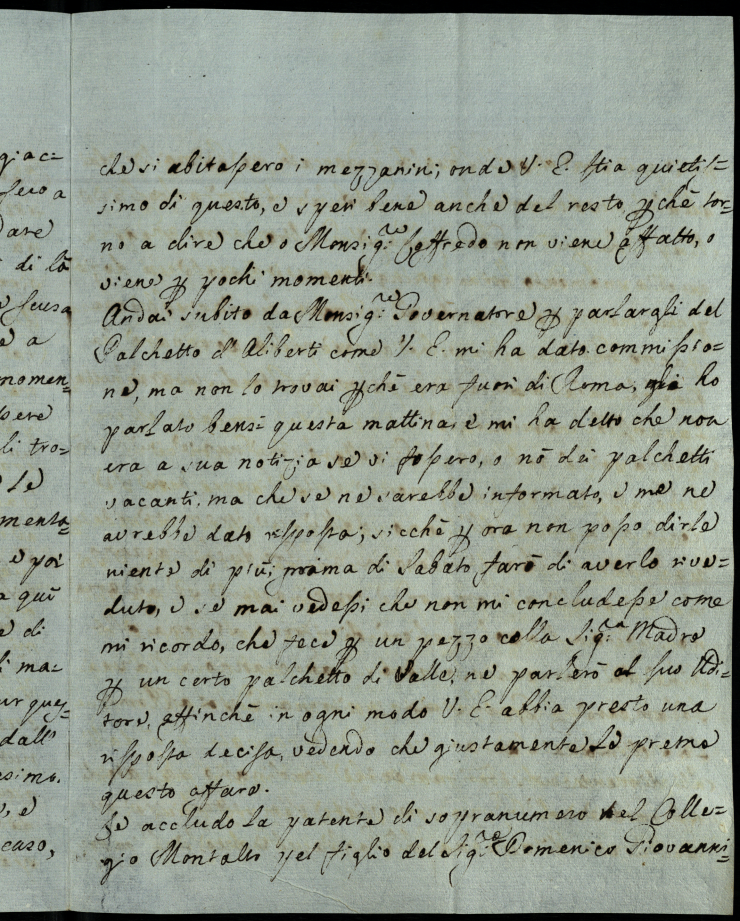 giac=
seco a
dare
di là
e scusa
e a
momen=
sere
li tro=
e le
menta=
e poi
a qui
e di
li ma=
ur ques=
dall'
esimo.
o, e
caso,
che si abitassero i mezzanini; onde V. E. stia quietis=
simo di questo, e speri bene anche del resto, pchè tor=
no a dire che o Monsig.re Goffredo non viene affatto, o
viene p pochi momenti.
Andai subito da Monsig.re Governatore p parlargli del
Palchetto d'Aliberti come V. E. mi ha dato commissio=
ne, ma non lo trovai pchè era fuori di Roma, gli ho
parlato bensì questa mattina, e mi ha detto che non
era a sua notizia se vi fossero, o nò dei palchetti
vacanti, ma che se ne sarebbe informato, e me ne
avrebbe dato risposta; sicchè p ora non posso dirle
niente di più; prima di Sabato farò di averlo rive=
duto, e se mai vedessi che non mi concludesse come
mi ricordo, che fece p un pezzo colla Sig.ra Madre
p un certo palchetto di Valle, ne parlerò al suo Udi=
tore, affinchè in ogni modo V. E. abbia presto una
risposta decisa, vedendo che giustamente le preme
questo affare.
Le accludo la patente di sopranumero nel Colle=
gio Montalto pel figlio del Sig.re Domenico Giovanni=